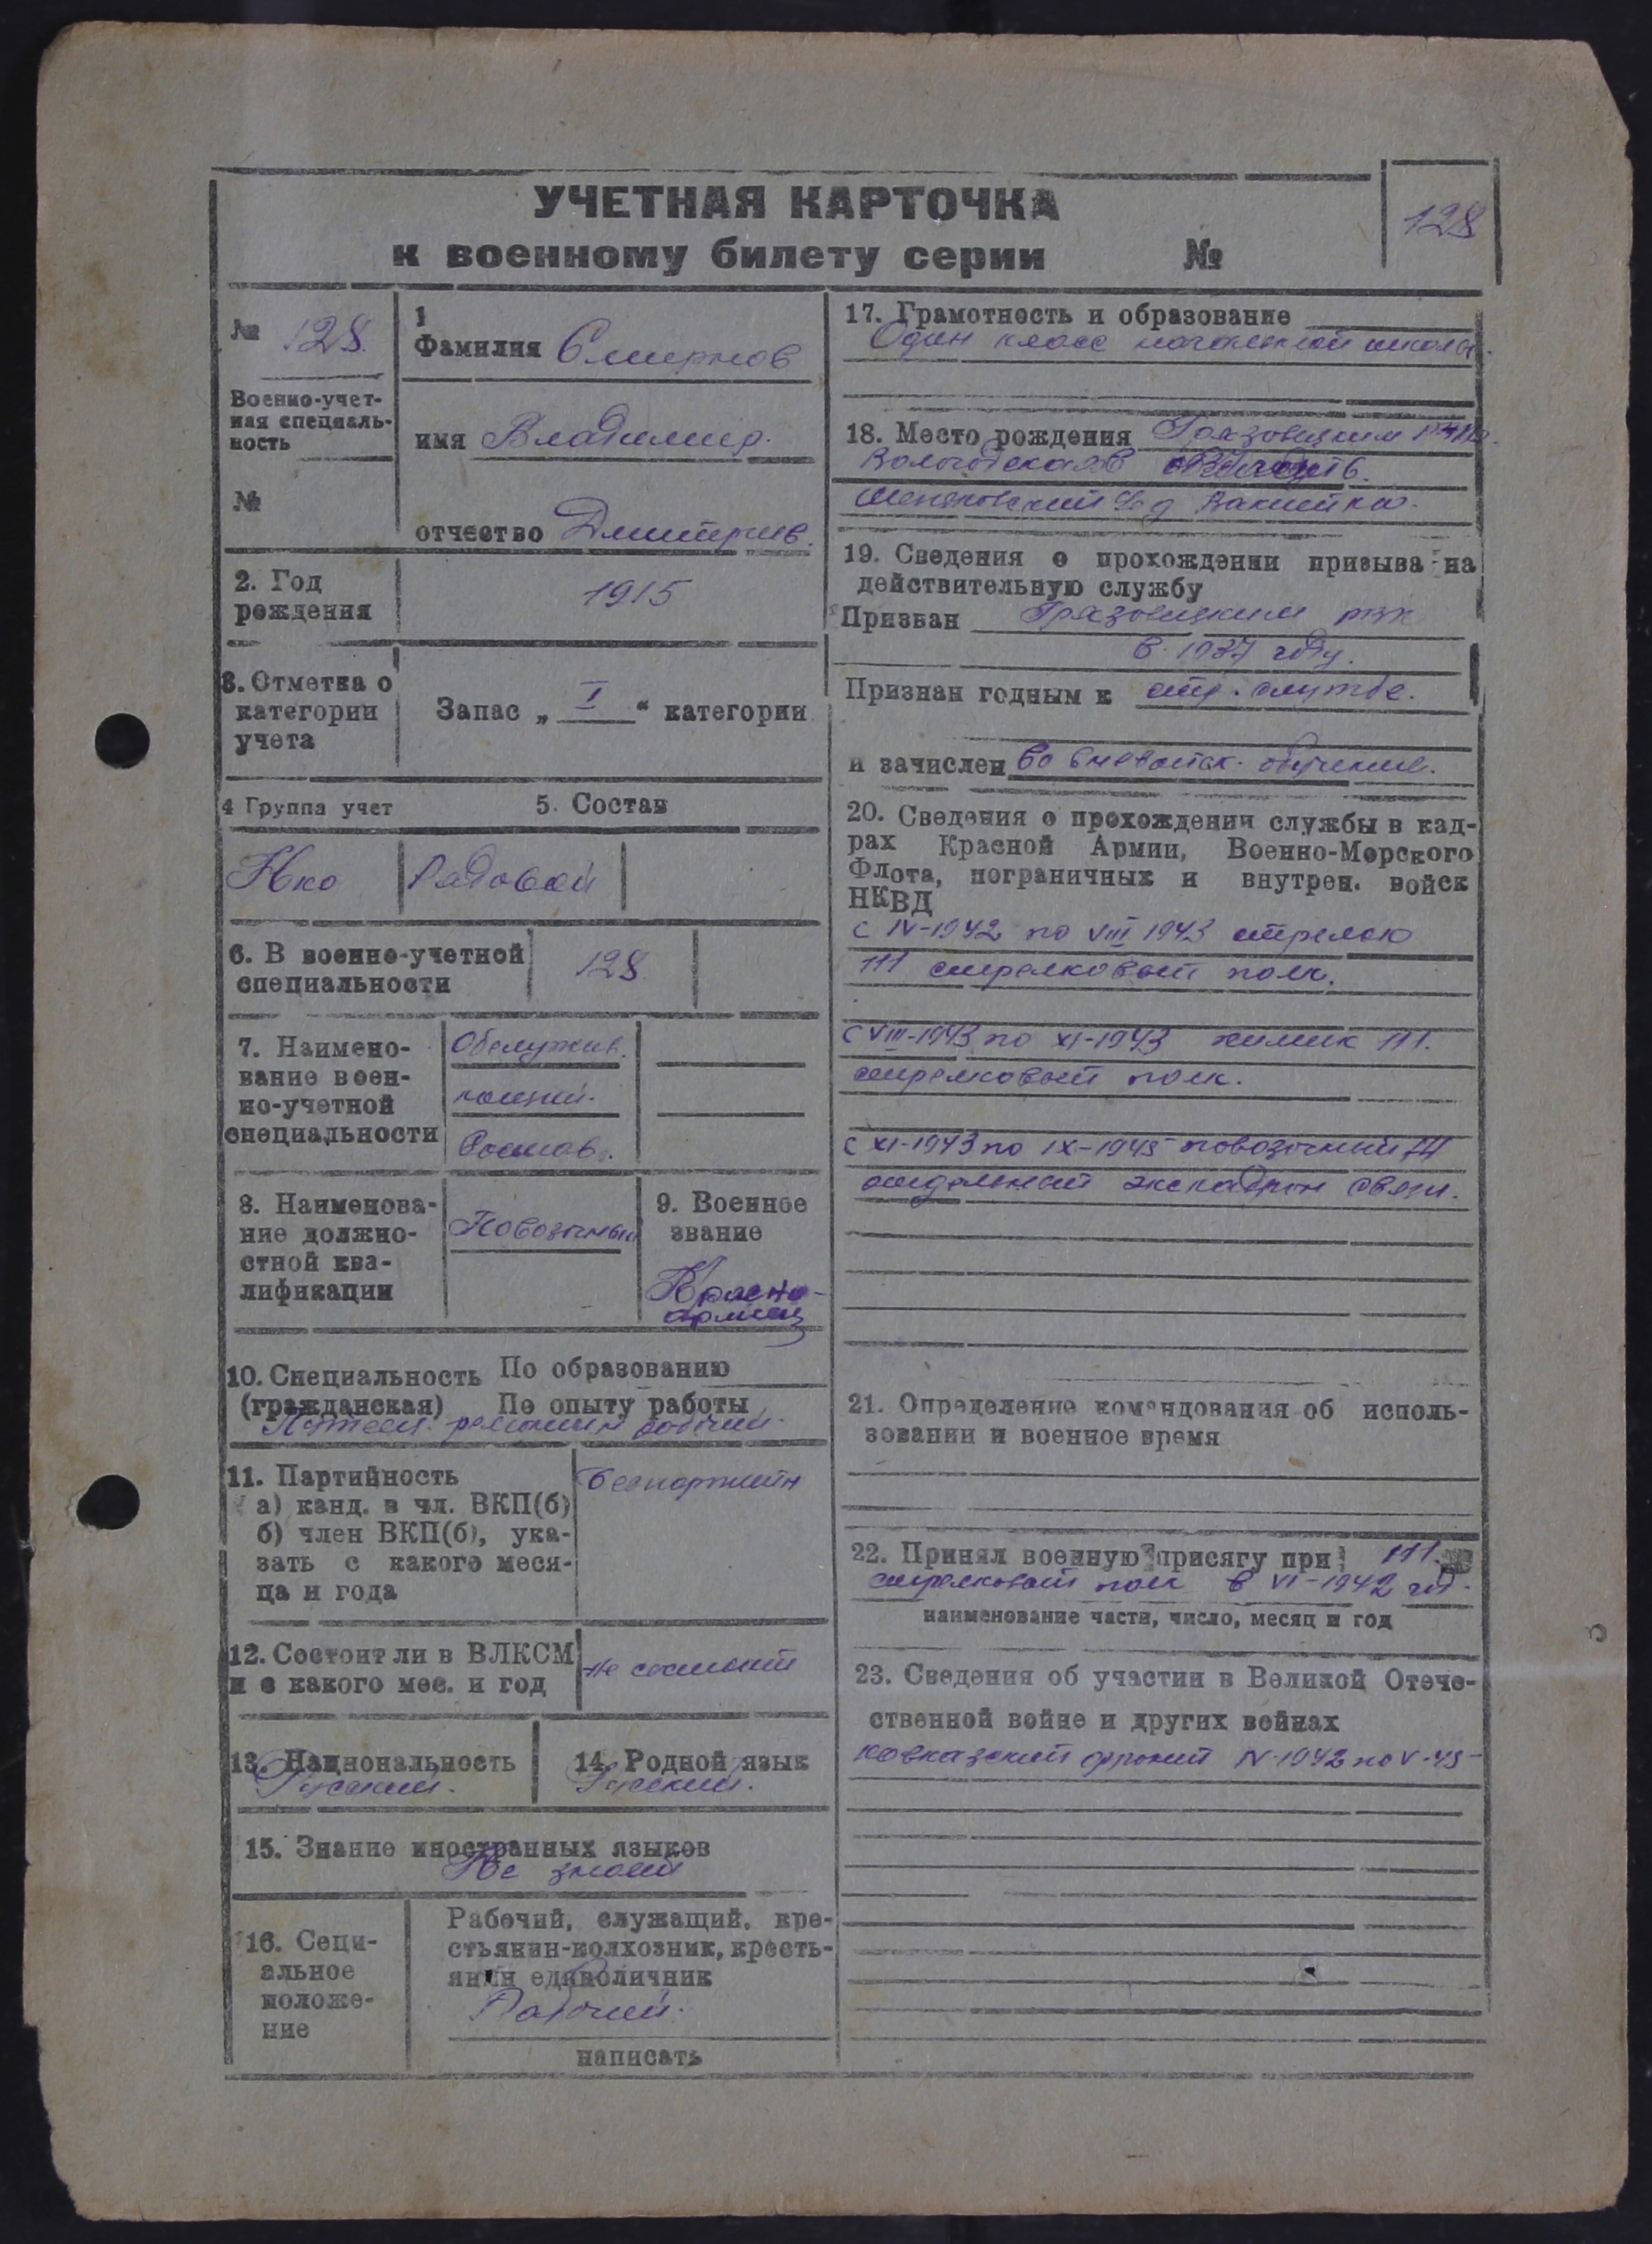 УЧЕТНАЯ КАРТОЧКА
к военному билету серии №
128
№ 128.
Военно-учет-
ная специаль-
ность
№
1
Фамилия Смирнов
имя Владимир.
отчество Дмитрив.
2. Год
рождения
1915
3. Отметка о
категории
учета
Запас „ I “ категории
4 Группа учет
5. Состав
Нко
Рядовой
6. В военно-учетной
специальности
128.
7. Наимено-
вание воен-
но-учетной
специальности
Обслужив.
Состав.
8. Наименова-
ние должно-
стной ква-
лификации
Повозочный
9. Военное
звание
Красно-
армеец
10. Специальность По образованию
(гражданская) По опыту работы
рабочий.
11. Партийность
а) канд. в чл. ВКП(б)
б) член ВКП(б), ука-
зать с какого меся-
ца и года
Беспартийн
12. Состоит ли в ВЛКСМ
и с какого мес. и год
не состоит
13. Национальность
Русский.
14. Родной язык
Русский.
15. Знание иностранных языков
Не знает
16. Соци-
альное
положе-
ние
Рабочий, служащий, кре-
стьянин-колхозник, кресть-
янин единоличник
Рабочий.
написать
17. Грамотность и образование
Один класс начальной школы.
18. Место рождения Грязовецким
Вологодская
д
19. Сведения о прохождении призыва на
действительную службу
Призван Грязовецким рвк
в 1937 году.
Признан годным к стр. службе.
и зачислен во вневойск. обучение.
20. Сведения о прохождении службы в кад-
рах Красной Армии, Военно-Морского
Флота, пограничных и внутрен. войск
НКВД
с IV-1942 по VIII 1943 стрелок
111 стрелковый полк.
с VIII-1943 по XI-1943 химик 111.
стрелковый полк.
с XI-1943 по IX-1945 повозочный
отдельный экскадрон связи.
21. Определение командования об исполь-
зовании и военное время
22. Принял военную присягу при 111.
стрелковый полк в VI-1942 год.
наименование части, число, месяц и год
23. Сведения об участии в Великой Отече-
ственной войне и других войнах
кавказский фронт IV-1942 по V-45